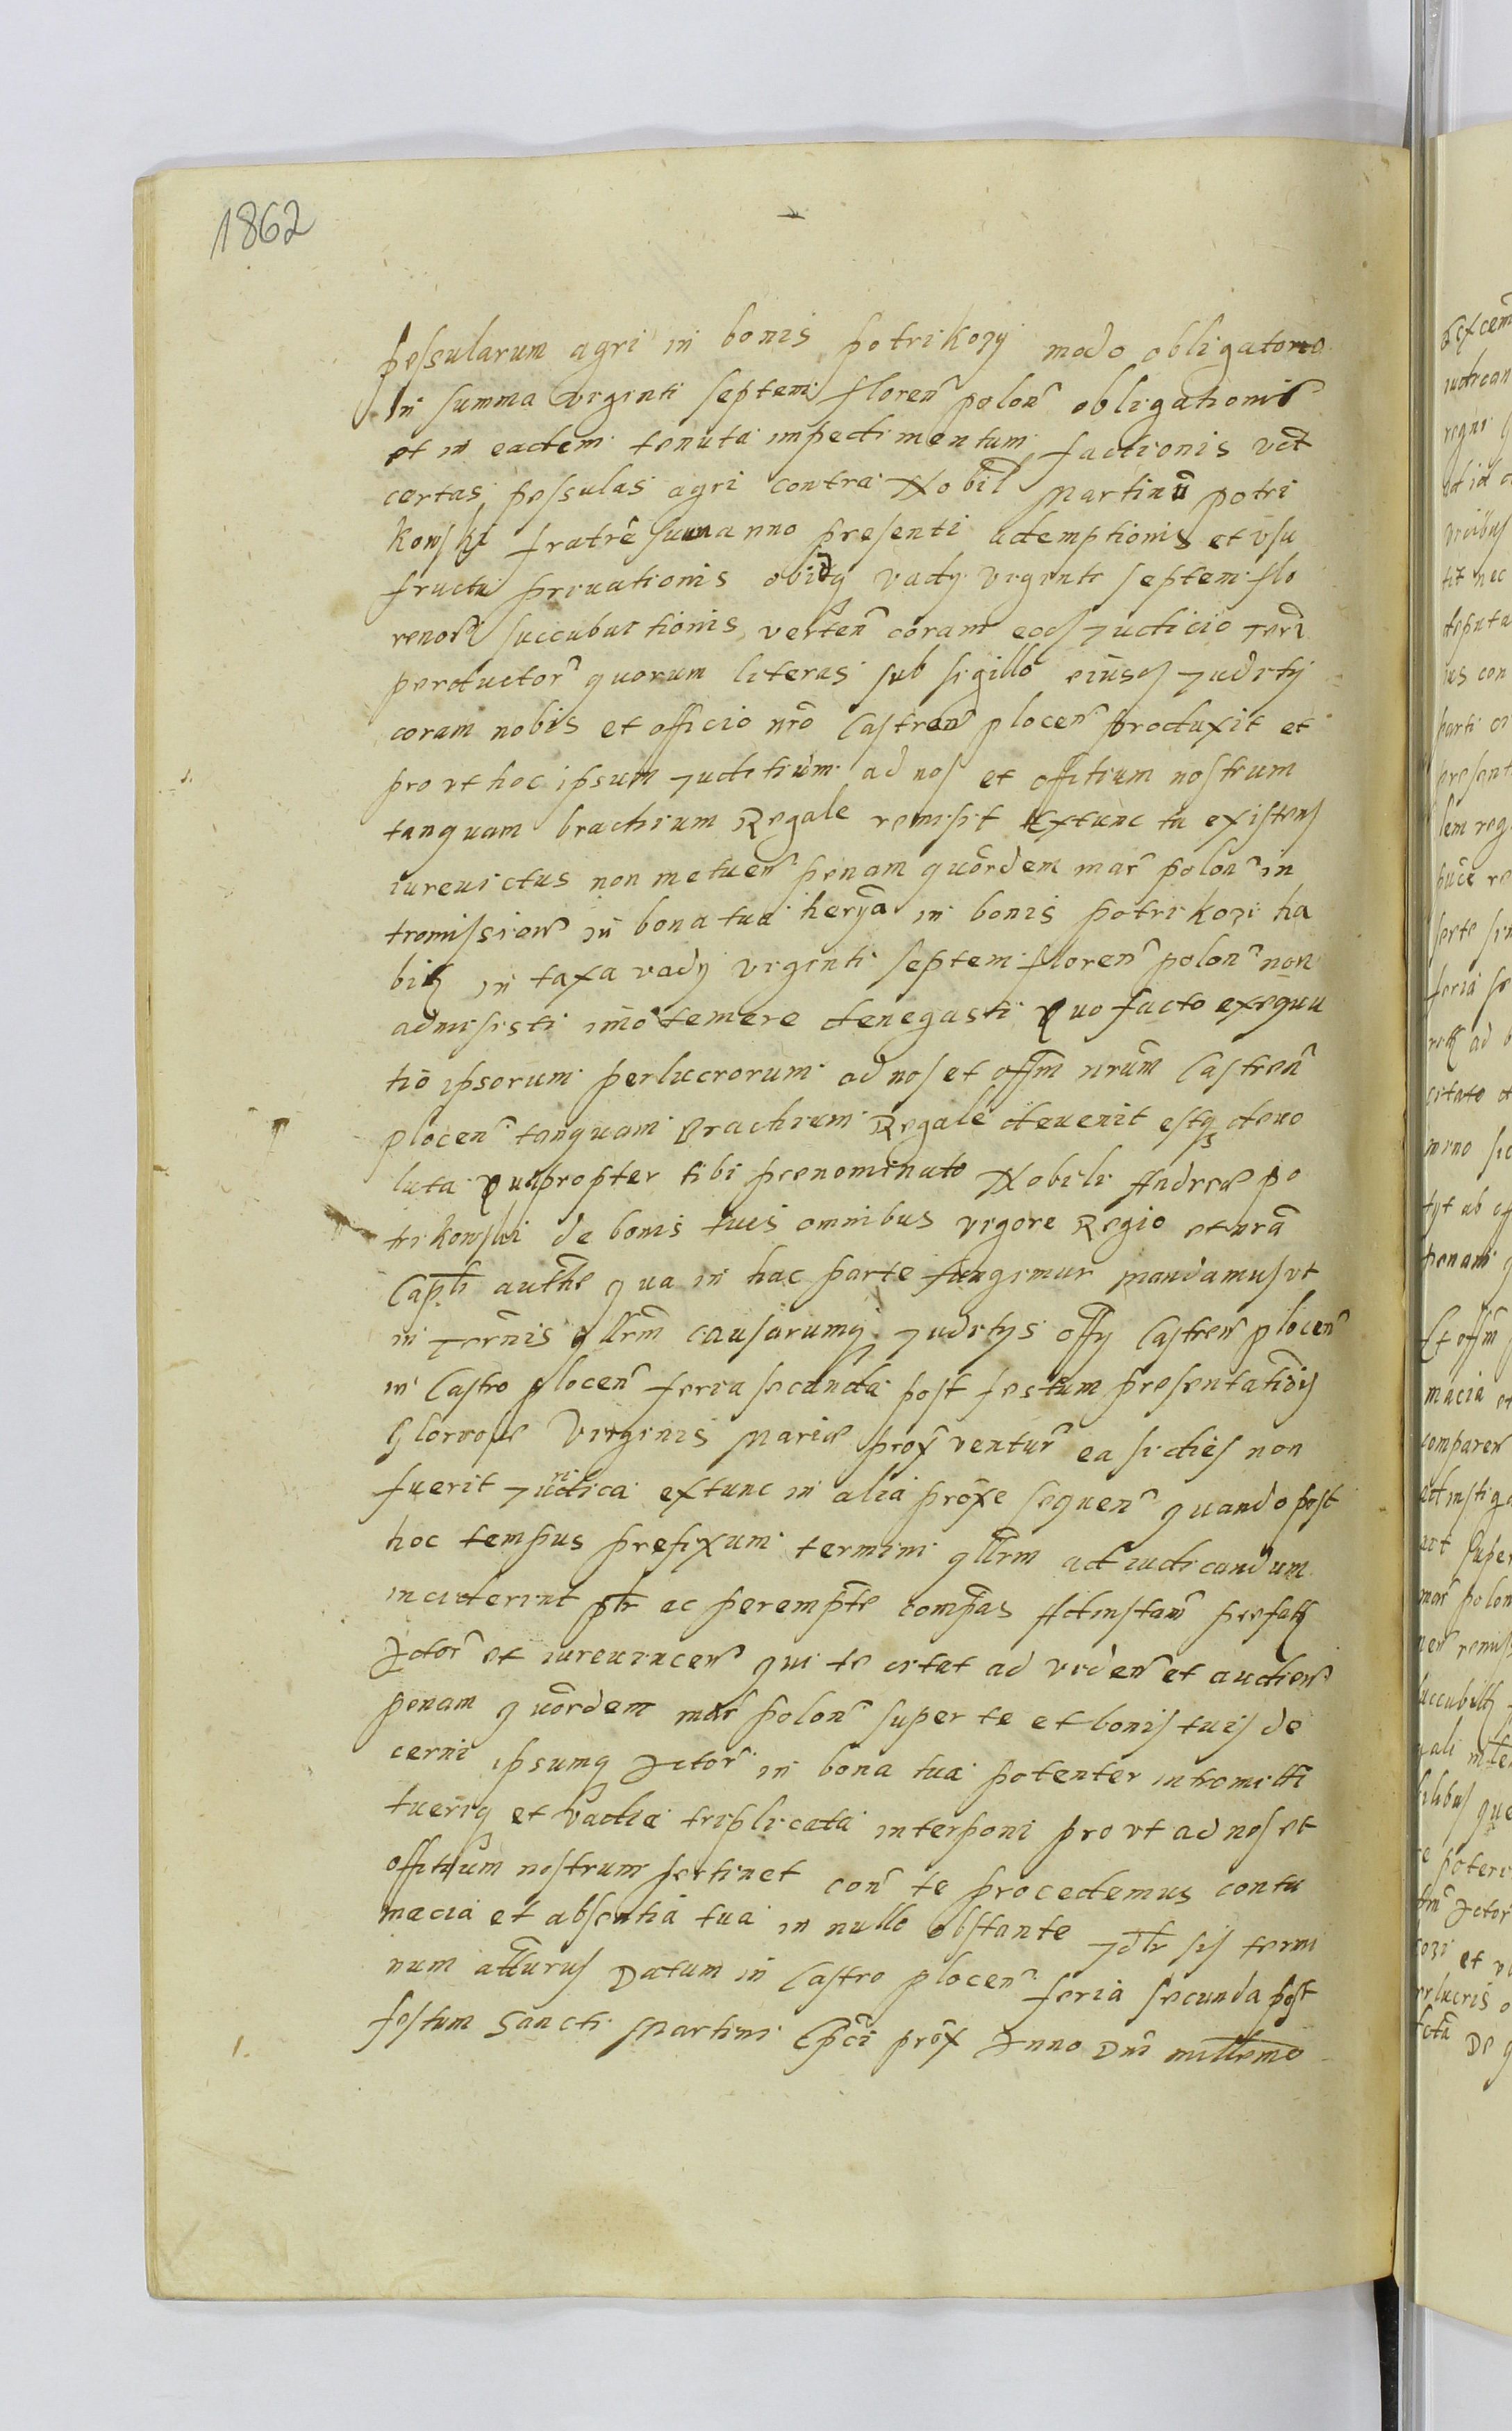 1862
pessularum agri in bonis potrikozy modo obligatorio
In summa viginti septem floren polon obligationis
et in eadem tenuta impedimentum factionis vct
certas pessulas agri contra Nobil Martinū potri
kowski fratrē suum anno presenti ademptionis et vsu
fructu priuationis obidq vady viginti septem flo
renor succubuitionis verten coram eod Judicio terr
perductor quorum literas sub sigillo eiusd Juditij
coram nobis et officio nrō Castren plocen produxit et
pro vt hoc ipsum Juditium ad nos et offitium nostrum
tanquam brachium Regale remisit Extunc tu existens
iureuictus non metuen penam quōrdem mar polon in
tromission in bona tua herīa in bonis potrikozi ha
bit in taxa vady viginti septem floren polon non
admisisti imō temere denegasti Quo facto exequu
tio ipsorum perlucrorum ad nos et offm nrum Castren
plocen tanquam Brachium Regale deuenit estq deuo
luta Quapropter tibi prenominato Nobili Andreæ po
trikowski de bonis tuis omnibus vigore Regio et nrā
Capli authe qua in hac parte fungimur mandamus vt
in Terrnis qllrm causarumq Juditys offy Castren plocen
in Castro plocen feria secunda post festum presentatiois
Gloriosæ Virginis Mariæ prox ventur ea si dies non
fuerit Juridica extunc in alia proxe sequen quando post
hoc tempus prefixum termini qllrm ad iudicandum
inciderint plr ac perempte compas Ad instan prefati
Actor et iureuincen qui te citat ad viden et audien
penam quōrdem mar polon super te et bonis tuis de
cerni ipsumq Actor in bona tua potenter intromitti
tueriq et vadia triplicata interponi pro vt ad nos et
offitium nostrum pertinet con te procedemus contu
macia et absentia tua in nullo obstante Jdlr sis termi
num attūrus Datum in Castro plocen feria secunda post
festum Sancti Martini Epci prox Anno Dni millemo